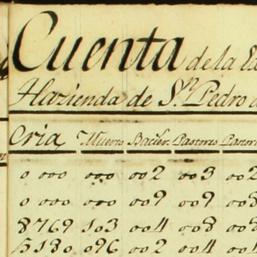 Cuenta de la
Hazienda de Sn. Pedro
Cria Muerto Bacier. Pastores
0 000 000 002 003 002
0 000 000 009 009 008
8769 103 004 008 008
5130 096 002 004 004